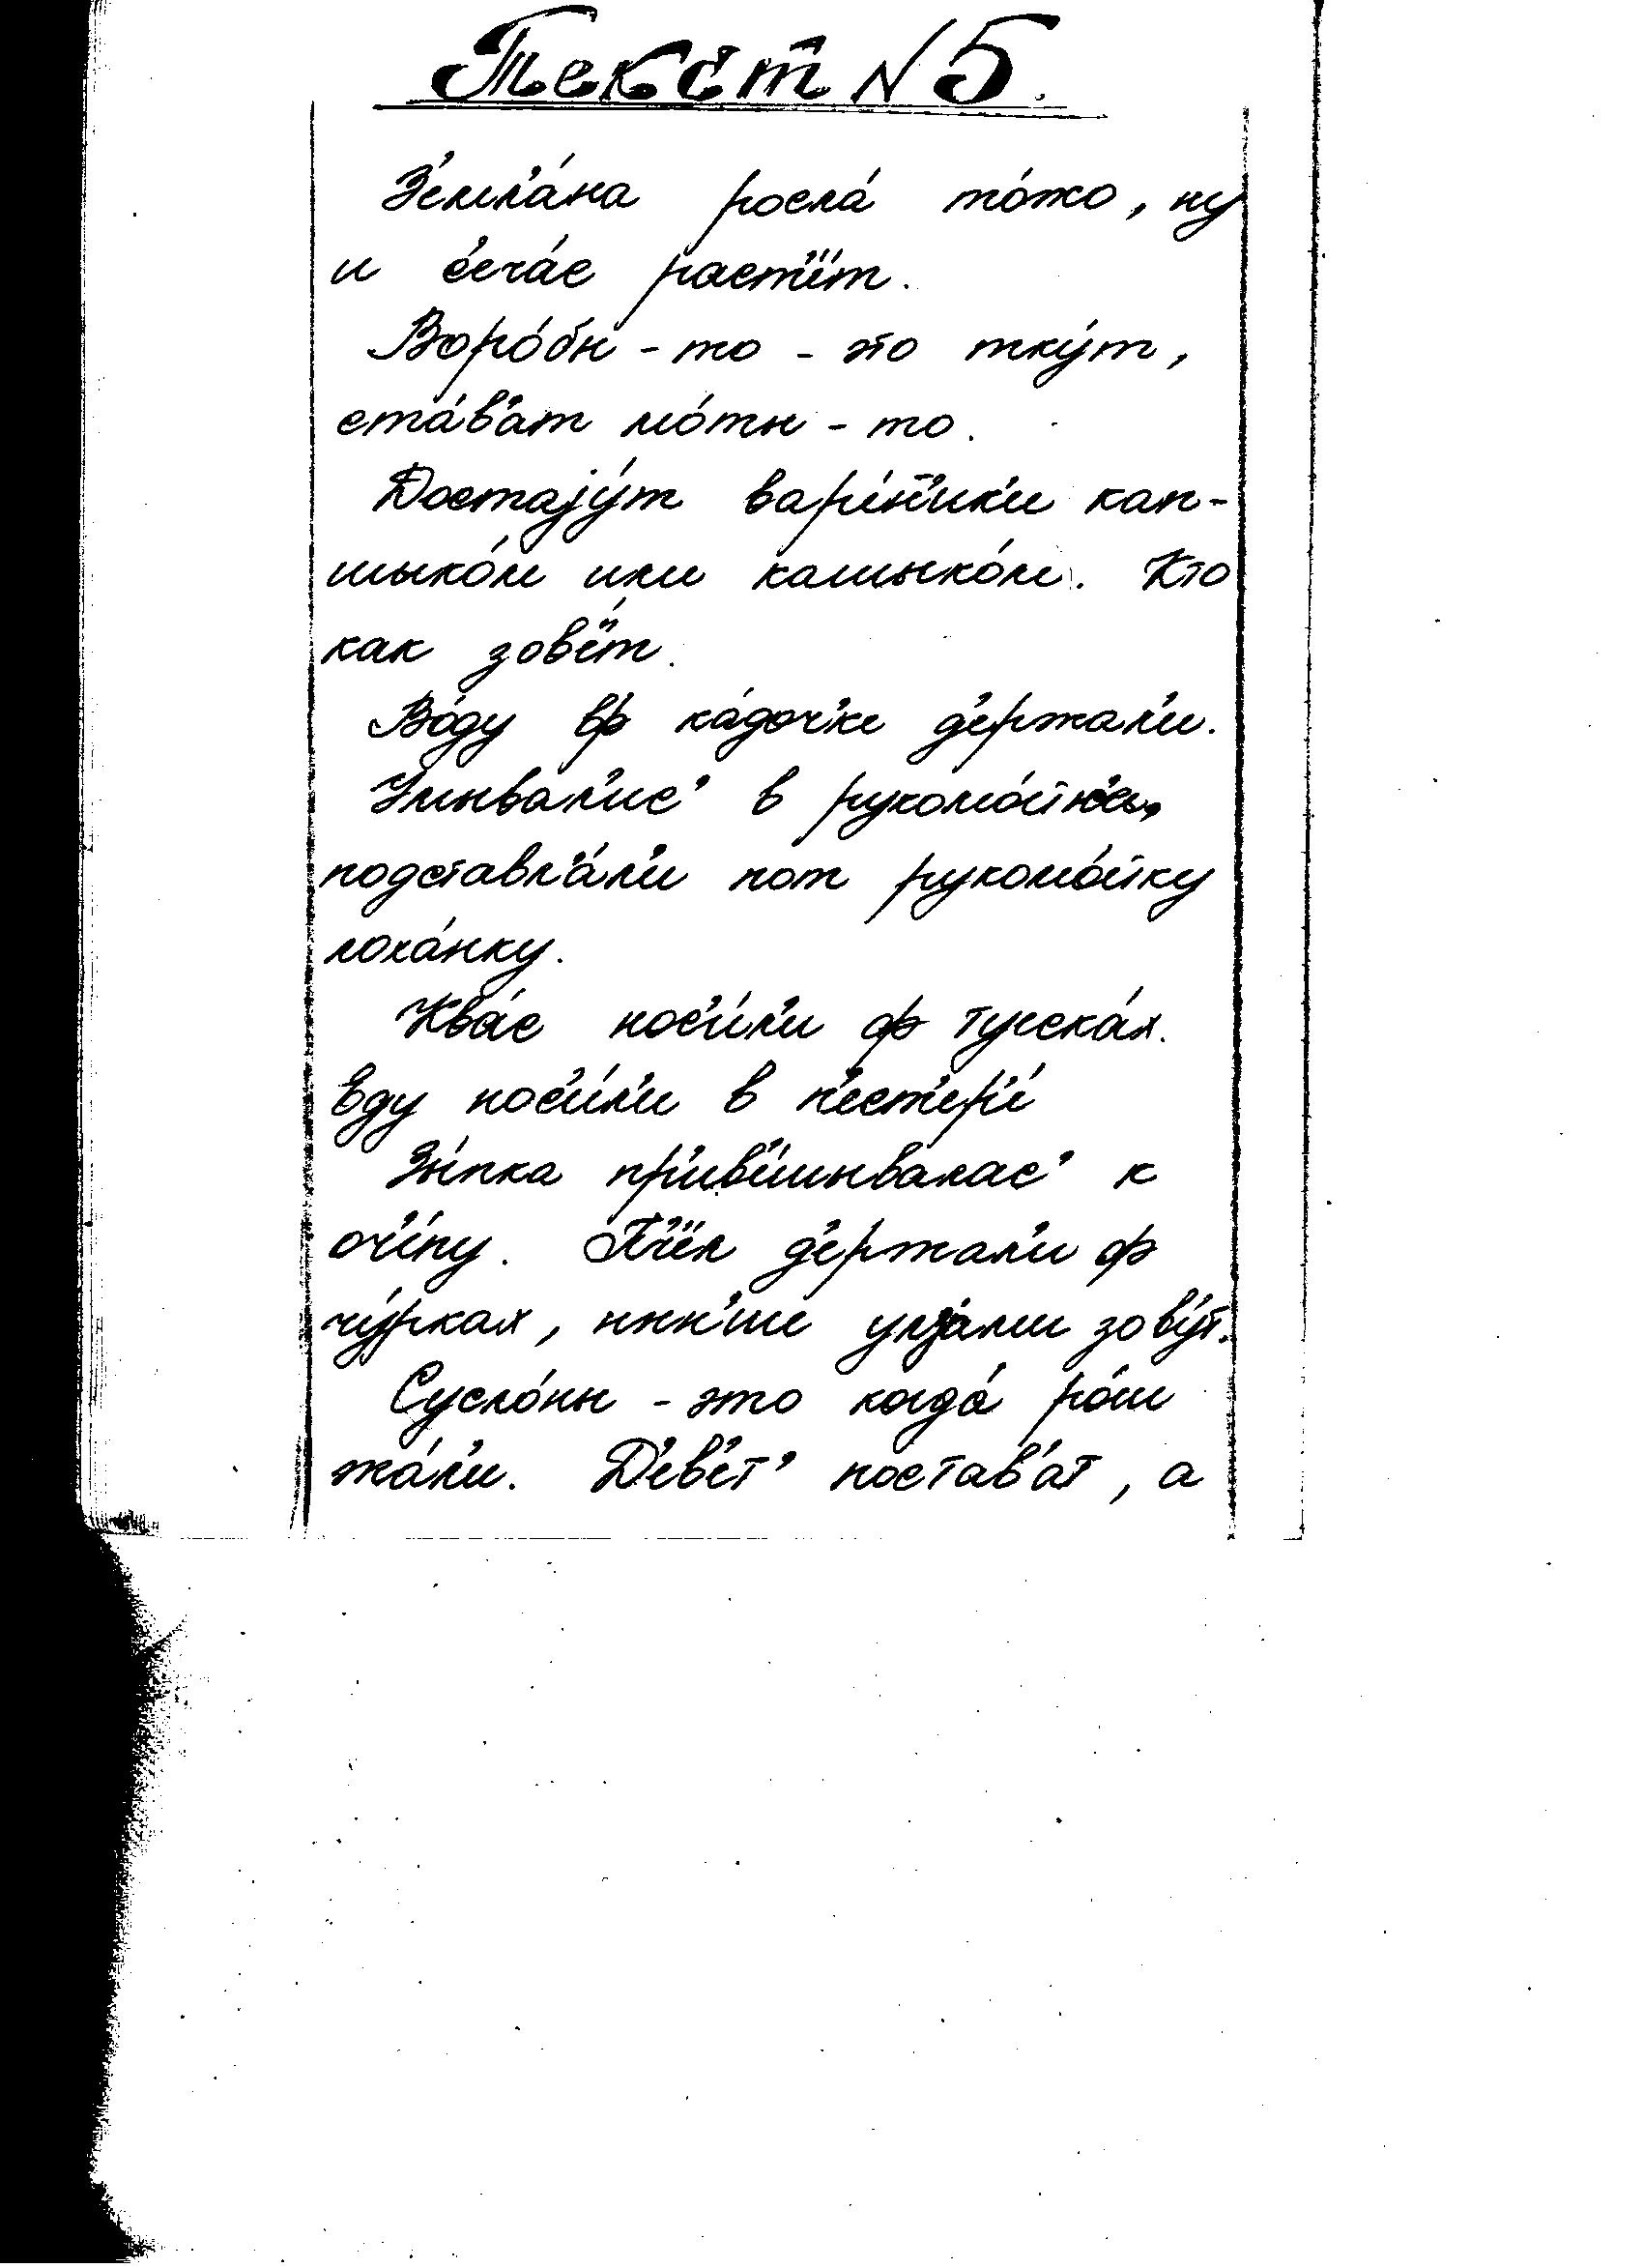 Текст N 5.
З'емл'а́на росла́ то́жо, ну
и с'еча́с раст'о́т.
Воро́бы - то - это тку́т,
ста́в'ат мо́ты - то.
Достају́т вар'е́н'ик'и кап-
шыко́м или кашыко́м. Кто
как зов'о́т.
Во́ду ф ка́доч'ке д'ержал'и.
Умывал'ис' в рукомо́йн'ик'е,
подставл'а́л'и пот рукомо́йку
лоха́нку.
Ква́с нос'и́л'и ф туеска́х.
Еду нос'и́л'и в п'ест'ер'е́
Зы́пка пр'ив'е́шывалас' к
оч'е́пу. Пч'о́л д'ержал'и ф
чу́рках, нын'ше улјами зову́т.
Сусло́ны - это когда́ ро́ш
жа́л'и. Д'е́в'ет' постав'ат, а